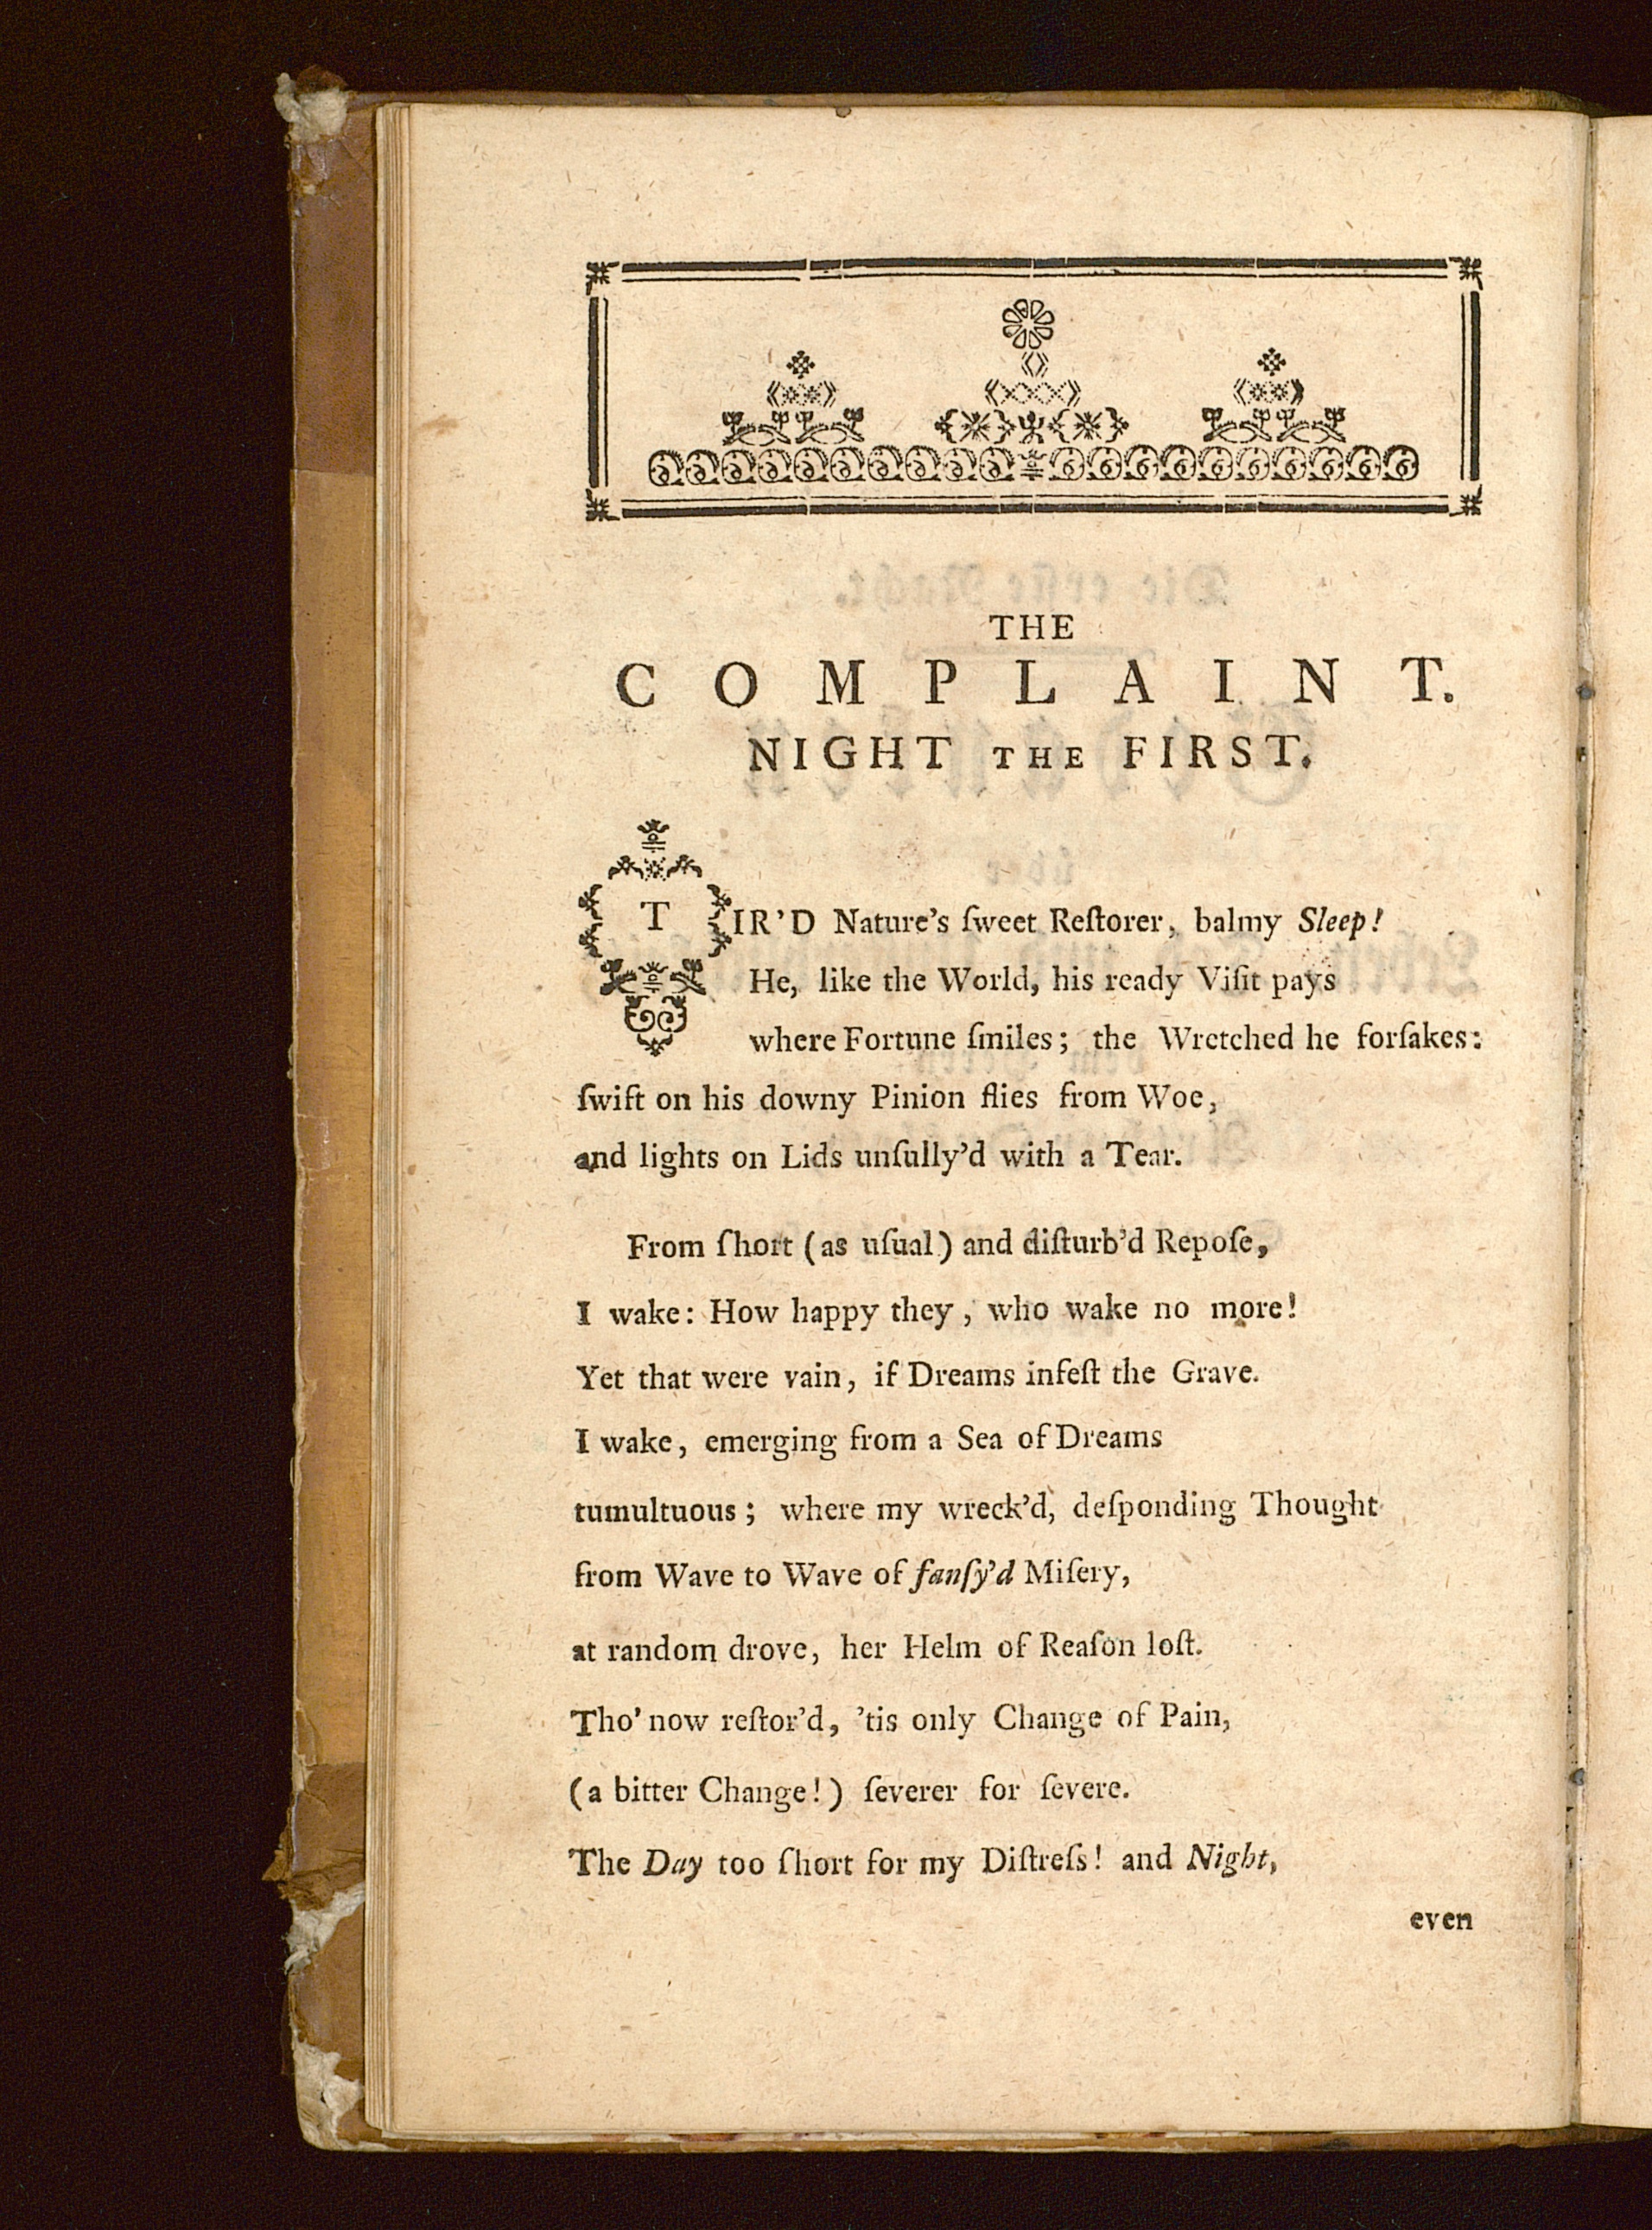 THE
COMPLAINT.
NIGHT THE FIRST.
TIR’D Nature’s ſweet Reſtorer, balmy Sleep!
He, like the World, his ready Viſit pays
where Fortune ſmiles; the Wretched he forſakes:
ſwift on his downy Pinion flies from Woe,
and lights on Lids unſully’d with a Tear.
From ſhort (as uſual) and diſturb’d Repoſe,
I wake: How happy they, who wake no more!
Yet that were vain, if Dreams infeſt the Grave.
I wake, emerging from a Sea of Dreams
tumultuous; where my wreck’d, deſponding Thought
from Wave to Wave of fanſy’d Miſery,
at random drove, her Helm of Reaſon loſt.
Tho’ now reſtor’d, ’tis only Change of Pain,
(a bitter Change!) ſeverer for ſevere.
The Day too ſhort for my Diſtreſs! and Night,
even